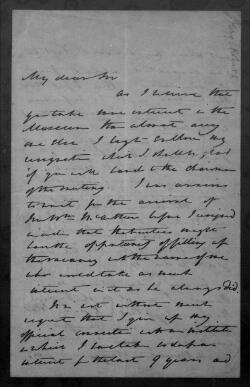 My dear Sir
as I believe that
you take more interest in the
Museum than almost any
one else I beg to enclose my
resignation which I shall be glad
if you will hand to the chairman
of the meeting. I was anxious
to wait for the arrival of
before I resigned
in order that the trustees might
have the opportunity of filling up
the vacancy with the name of one
who would take as much
interest in it as he always did
It is not without much
regret that I give up my
official connection with an institute
in which I have taken so deep an
interest for the last 9 years and